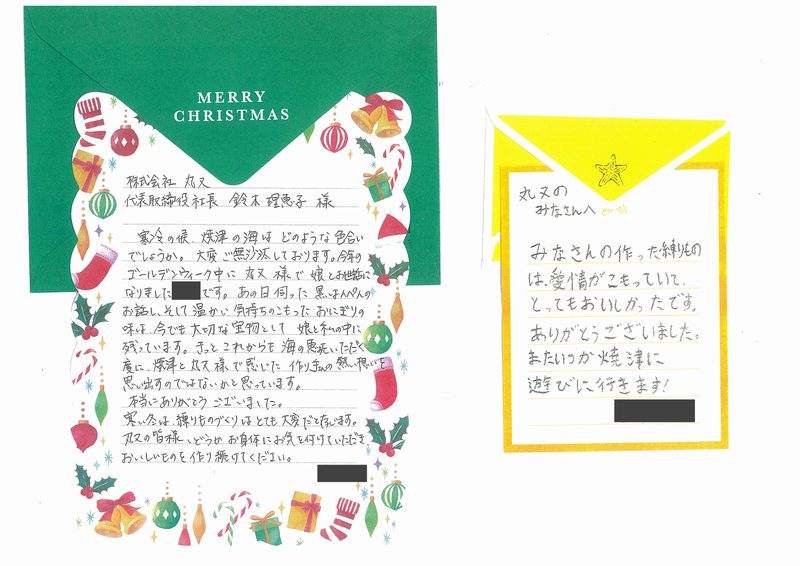 MERRY
CHRISTMAS
株式会社 丸又
代表取締役社長 鈴木 理恵子 様
寒冷の候、焼津の海は どのような色合い
でしょうか。大変ご無沙汰しております。今年の
ゴールデンウィーク中に 丸又 様で 娘とお世話に
なりました です。あの日 伺った 黒はんぺんの
お話、そして 温かい 気持ちのこもった おにぎりの
味は、今でも 大切な 宝物として 娘と私の中に
残っています。きっと これからも 海の恵みいただく
度に 焼津と 丸又 様で 感じた 作り手さんの 熱い想いを
思い出すのではないかと思っています。
本当にありがとう ございました。
寒い冬は 練りものづくりは とても 大変だと存じます。
丸又の皆様、どうか お身体に お気を付けていただき
おいしいものを 作り続けてください。
丸又の
みなさんへ
みなさんの作った練りもの
は、愛情がこもっていて、
とってもおいしかったです。
ありがとうございました。
またいつか焼津に
遊びに行きます!